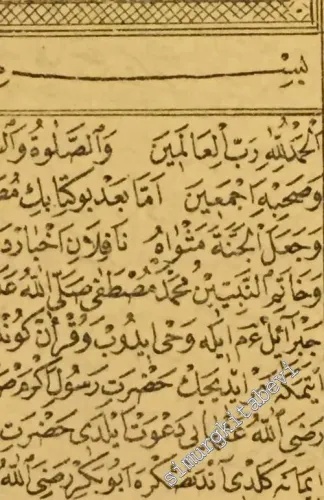 بسـ
الحمد لله رب العالمين والصلوة
وصحبه اجمعين اما بعد بو كتابك
وجعل الجنة مثواه ناقلان اخبار
وخاتم النبيين محمد مصطفى صلى الله
جبرآئيل ءم ايله وحى ايدوب وقرأن
ايتمكه ايديجك حضرت رسول اكرم
رضى الله عنها بى دعوت ايلدى حضرت
ايمانه كلدى آندنصكره ابو بكر رضى الله
simurgkitabevi